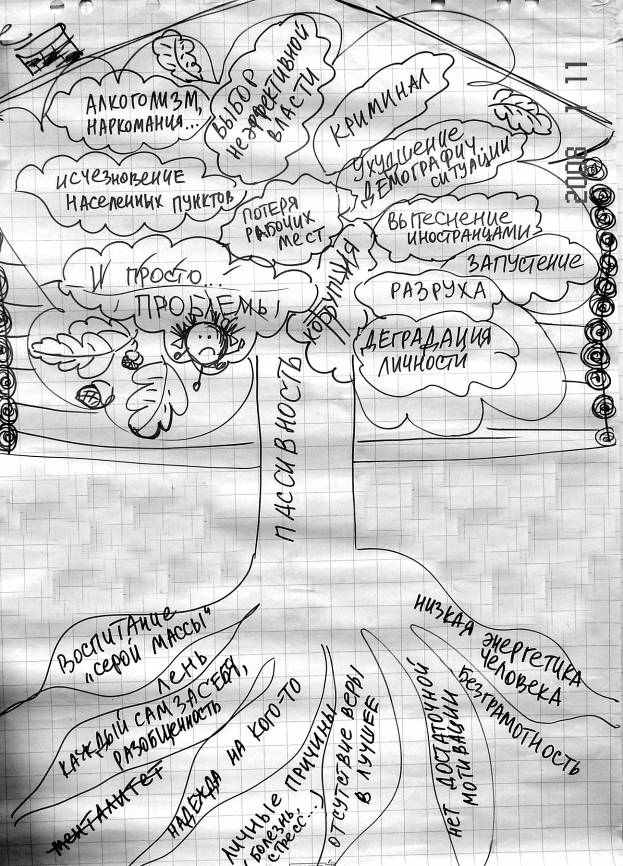 АЛКОГОЛИЗМ,
НАРКОМАНИЯ...
ВЫБОР
НЕЭФФЕКТИВНОЙ
ВЛАСТИ
КРИМИНАЛ
2008 1 11
УХУДШЕНИЕ
ДЕМОГРАФИЧ.
СИТУАЦИИ
ИСЧЕЗНОВЕНИЕ
НАСЕЛЕННЫХ ПУНКТОВ
ПОТЕРЯ
РАБОЧИХ
МЕСТ
ВЫТЕСНЕНИЕ
ИНОСТРАНЦАМИ
ЗАПУСТЕНИЕ
И ПРОСТО...
ПРОБЛЕМЫ
КОРРУПЦИЯ
РАЗРУХА
ДЕГРАДАЦИЯ
ЛИЧНОСТИ
ПАССИВНОСТЬ
ВОСПИТАНИЕ
„СЕРОЙ МАССЫ"
ЛЕНЬ
КАЖДЫЙ САМ ЗА СЕБЯ,
РАЗОБЩЕННОСТЬ
МЕНТАЛИТЕТ
НАДЕЖДА НА КОГО-ТО
ЛИЧНЫЕ ПРИЧИНЫ
(БОЛЕЗНЬ,
СТРЕСС...)
ОТСУТСТВИЕ ВЕРЫ
В ЛУЧШЕЕ
НЕТ ДОСТАТОЧНОЙ
МОТИВАЦИИ
БЕЗГРАМОТНОСТЬ
НИЗКАЯ ЭНЕРГЕТИКА
ЧЕЛОВЕКА